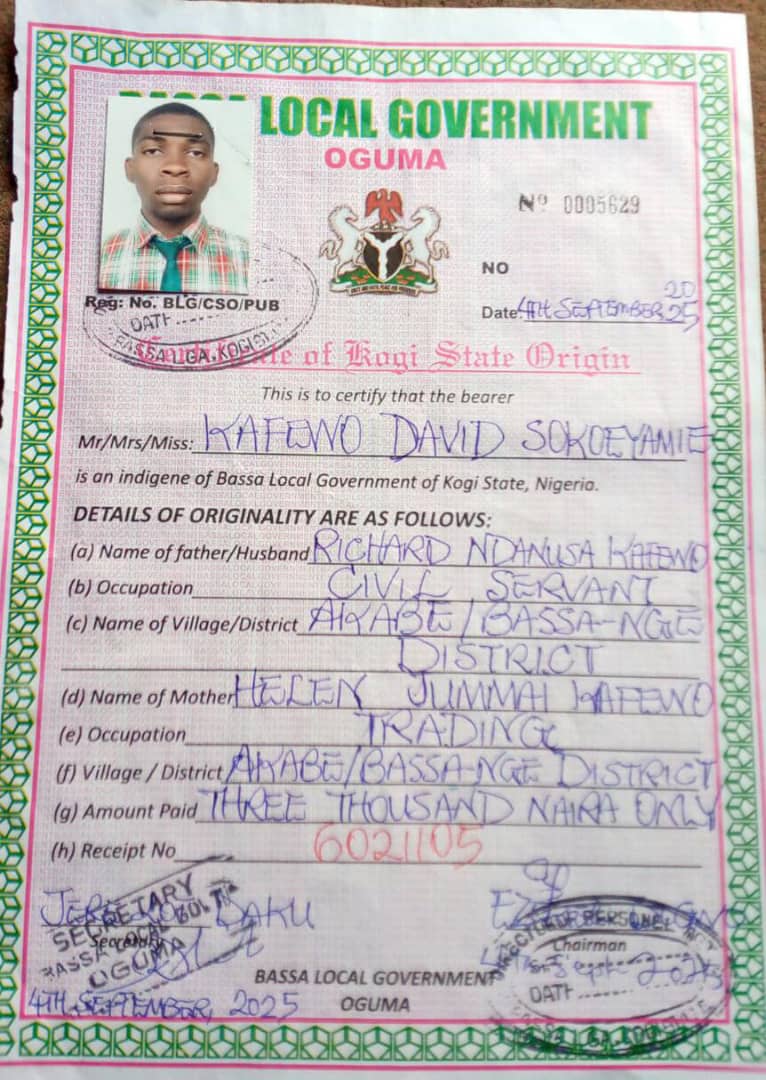 BASSA LOCAL GOVERNMENT
OGUMA
Nº 0005629
NO
Reg: No. BLG/CSO/PUB
DATE
BASSA LGA, KOGI
Date: 4TH SEPTEMBER 2025
Certificate of Kogi State Origin
This is to certify that the bearer
Mr/Mrs/Miss: KAFEWO DAVID SOKOEYAMIE
is an indigene of Bassa Local Government of Kogi State, Nigeria.
DETAILS OF ORIGINALITY ARE AS FOLLOWS:
(a) Name of father/Husband RICHARD NDANUSA KAFEWO
(b) Occupation CIVIL SERVANT
(c) Name of Village/District AKABE/BASSA-NGE
DISTRICT
(d) Name of Mother HELEN JUMMAI KAFEWO
(e) Occupation TRADING
(f) Village / District AKABE/BASSA-NGE DISTRICT
(g) Amount Paid THREE THOUSAND NAIRA ONLY
(h) Receipt No 6021105
DAKU
SECRETARY
BASSA LOCAL GOVT
OGUMA
Secretary
PERSONEL
Chairman
4th Sept 2025
DATE
BASSA LGA, KOGI
BASSA LOCAL GOVERNMENT
OGUMA
4TH SEPTEMBER, 2025